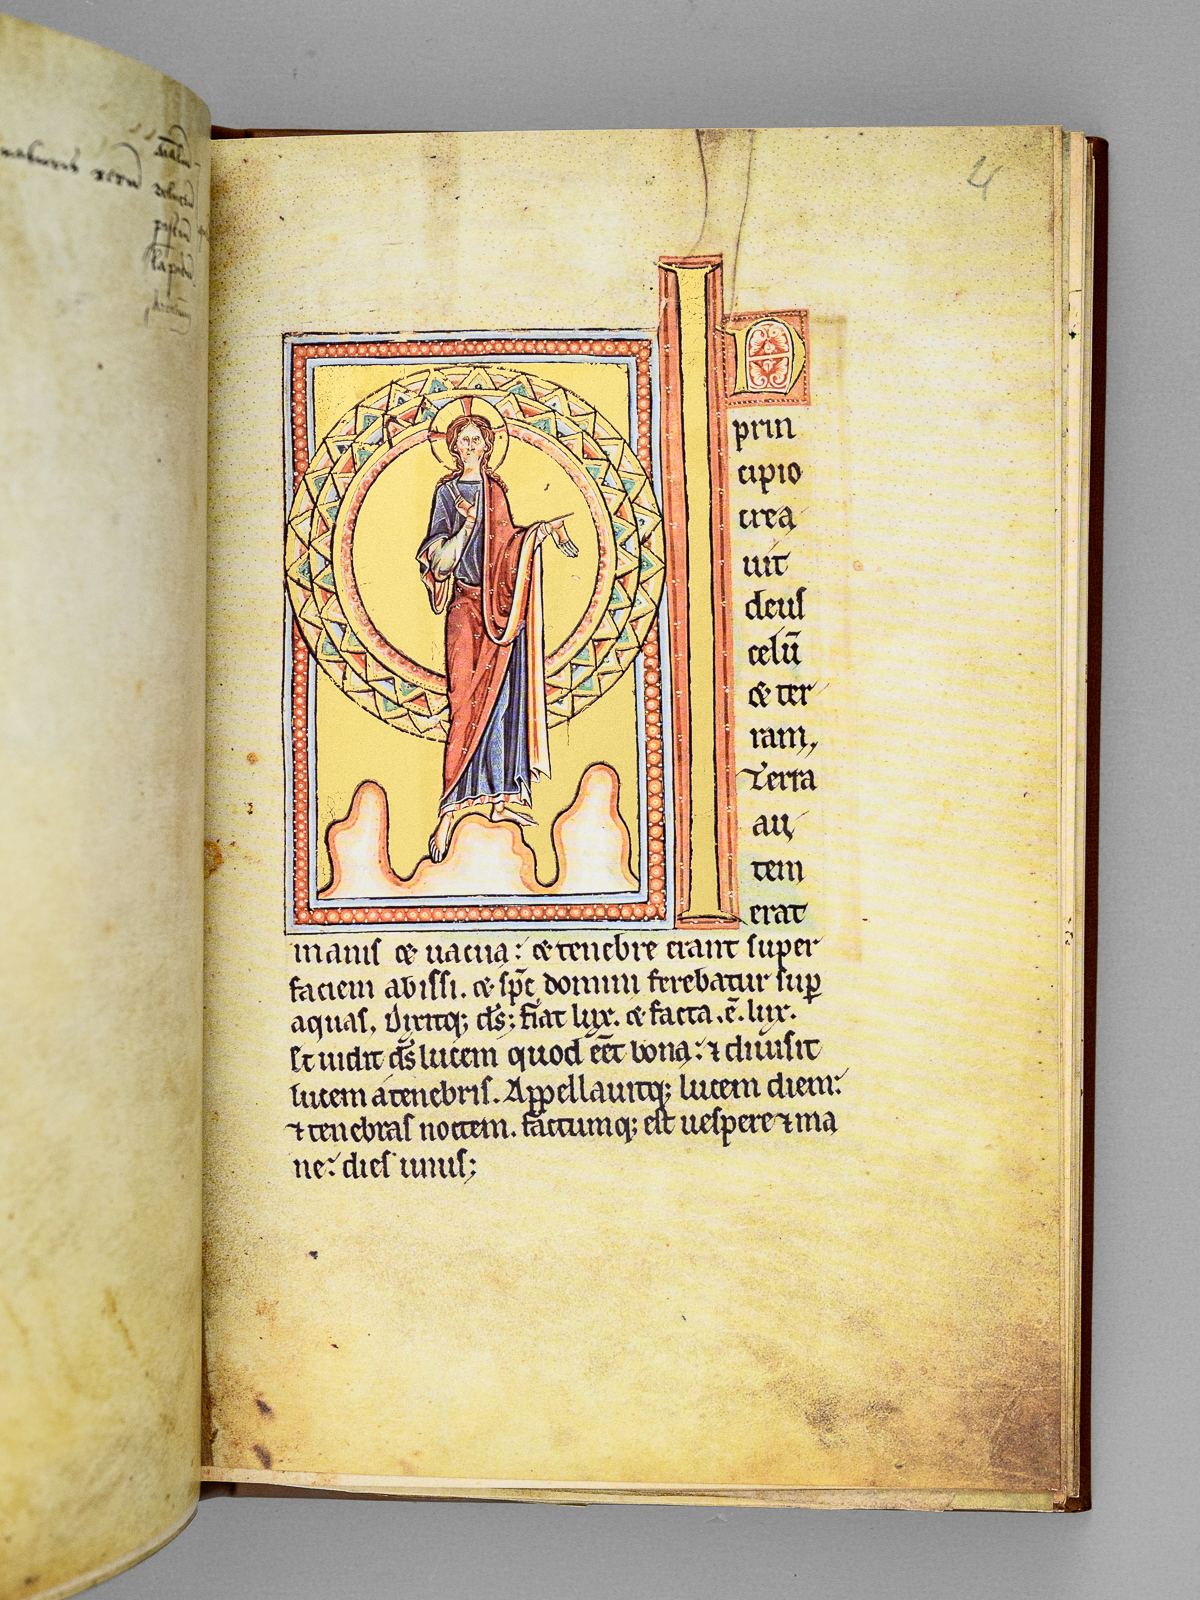 IN
prin
cipio
crea
uit
deus
celū
& ter
ram,
Terra
au
tem
erat
inanis & uacua: & tenebre erant super
faciem abissi. & sp̄c domini ferebatur sup
aquas, Dixitq; ds̄; fiat lux. & facta .ē. lux.
Et uidit ds̄ lucem quod eēt bona: ⁊ diuisit
lucem a tenebris. Appellauitq; lucem diem:
⁊ tenebras noctem. factumq; est uespere ⁊ ma
ne: dies unus;